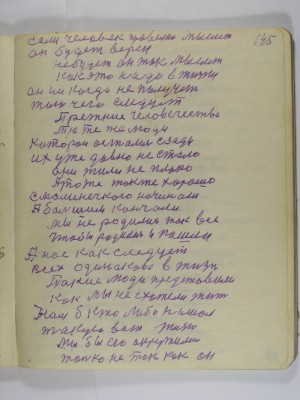 145
если человек провелно мыслит
он будет верен
не будет он так мыслит
как это надо в жизни
он ни когда не получит
того чего следует
Прежние человечество
Та те же люди
которои остались сзади
их уже давно не стало
они жили не плохо
А тоже также хорошо
с маленечкого начинали
А большим кончали
мы не родились так все
чтобы родились и пошли
А нас как следует
всех одинаково в жизни
Такие люди представили
как мы не схотели жит
Нам б кто либо нашол
такую вот жизн
мы бы его окружили
только не так как он